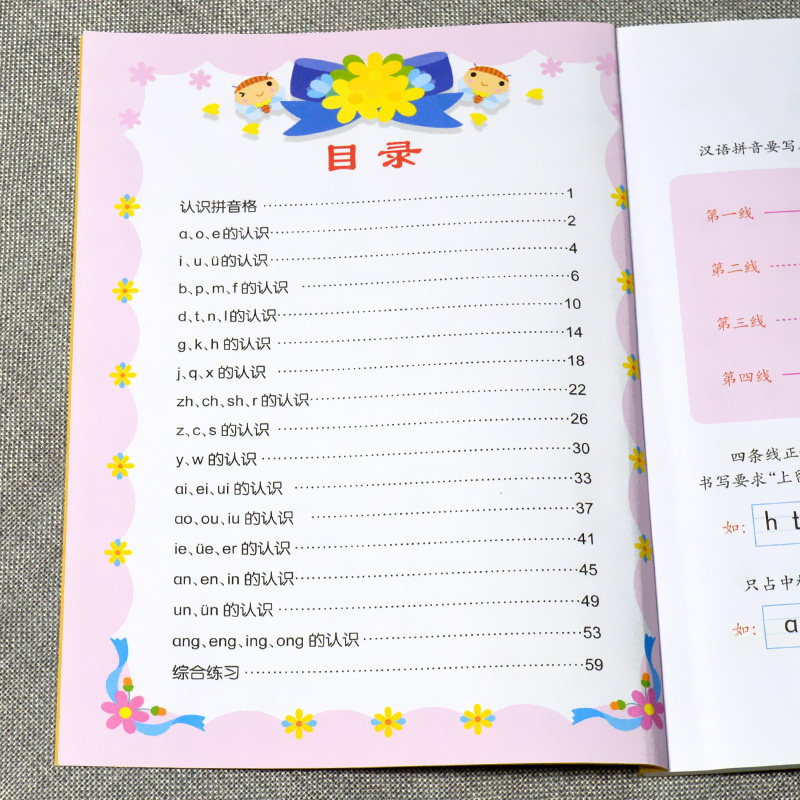 目录
认识拼音格 1
ɑ、o、e的认识 2
i、u、ü的认识 4
b、p、m、f的认识 6
d、t、n、l的认识 10
g、k、h的认识 14
j、q、x的认识 18
zh、ch、sh、r的认识 22
z、c、s的认识 26
y、w的认识 30
ɑi、ei、ui的认识 33
ɑo、ou、iu的认识 37
ie、üe、er的认识 41
ɑn、en、in的认识 45
un、ün的认识 49
ɑng、eng、ing、ong的认识 53
综合练习 59
汉语拼音要写
第一线
第二线
第三线
第四线
四条线正
书写要求“上留
如: h t
只占中
如: ɑ